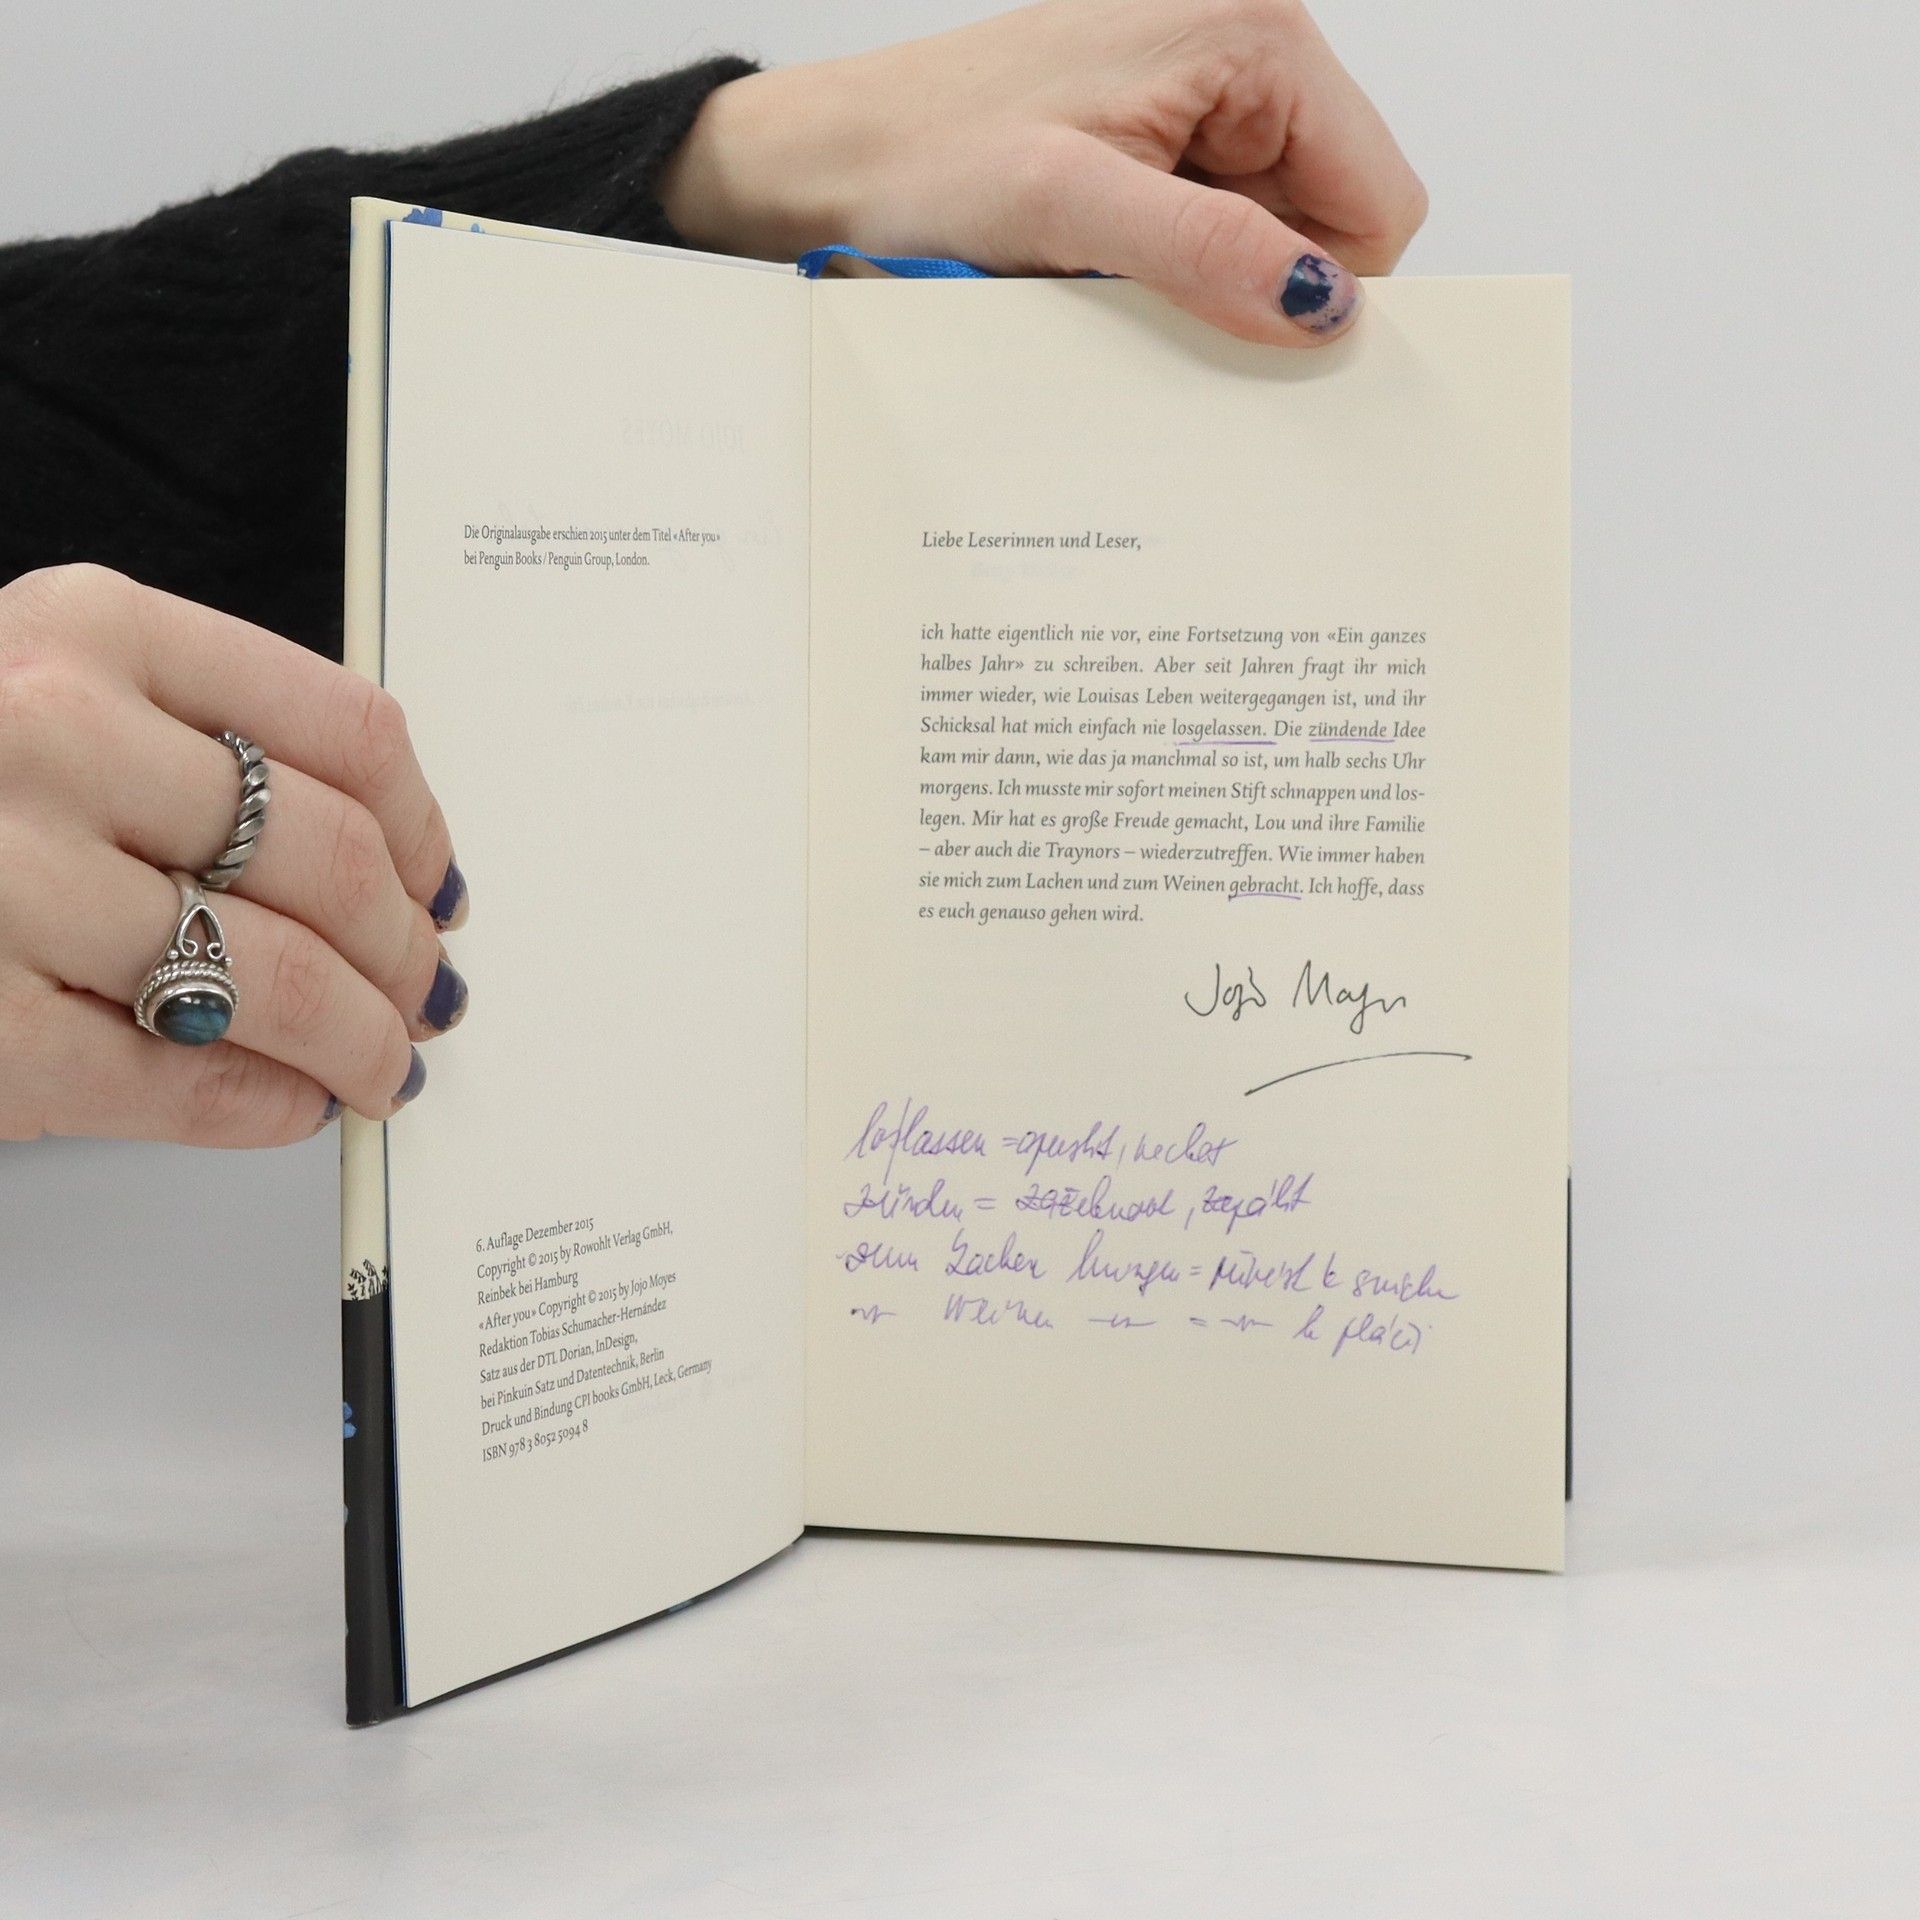 Die Originalausgabe erschien 2015 unter dem Titel «After you»
bei Penguin Books / Penguin Group, London.
6. Auflage Dezember 2015
Copyright © 2015 by Rowohlt Verlag GmbH,
Reinbek bei Hamburg
«After you» Copyright © 2015 by Jojo Moyes
Redaktion Tobias Schumacher-Hernández
Satz aus der DTL Dorian, InDesign,
bei Pinkuin Satz und Datentechnik, Berlin
Druck und Bindung CPI books GmbH, Leck, Germany
ISBN 978 3 8052 5094 8
Liebe Leserinnen und Leser,
ich hatte eigentlich nie vor, eine Fortsetzung von «Ein ganzes
halbes Jahr» zu schreiben. Aber seit Jahren fragt ihr mich
immer wieder, wie Louisas Leben weitergegangen ist, und ihr
Schicksal hat mich einfach nie losgelassen. Die zündende Idee
kam mir dann, wie das ja manchmal so ist, um halb sechs Uhr
morgens. Ich musste mir sofort meinen Stift schnappen und los-
legen. Mir hat es große Freude gemacht, Lou und ihre Familie
– aber auch die Traynors – wiederzutreffen. Wie immer haben
sie mich zum Lachen und zum Weinen gebracht. Ich hoffe, dass
es euch genauso gehen wird.
Jojo Moyes
loslassen = opustit, nechat
zünden = zapálit
zum Lachen bringen = k smíchu
Weinen = k pláči